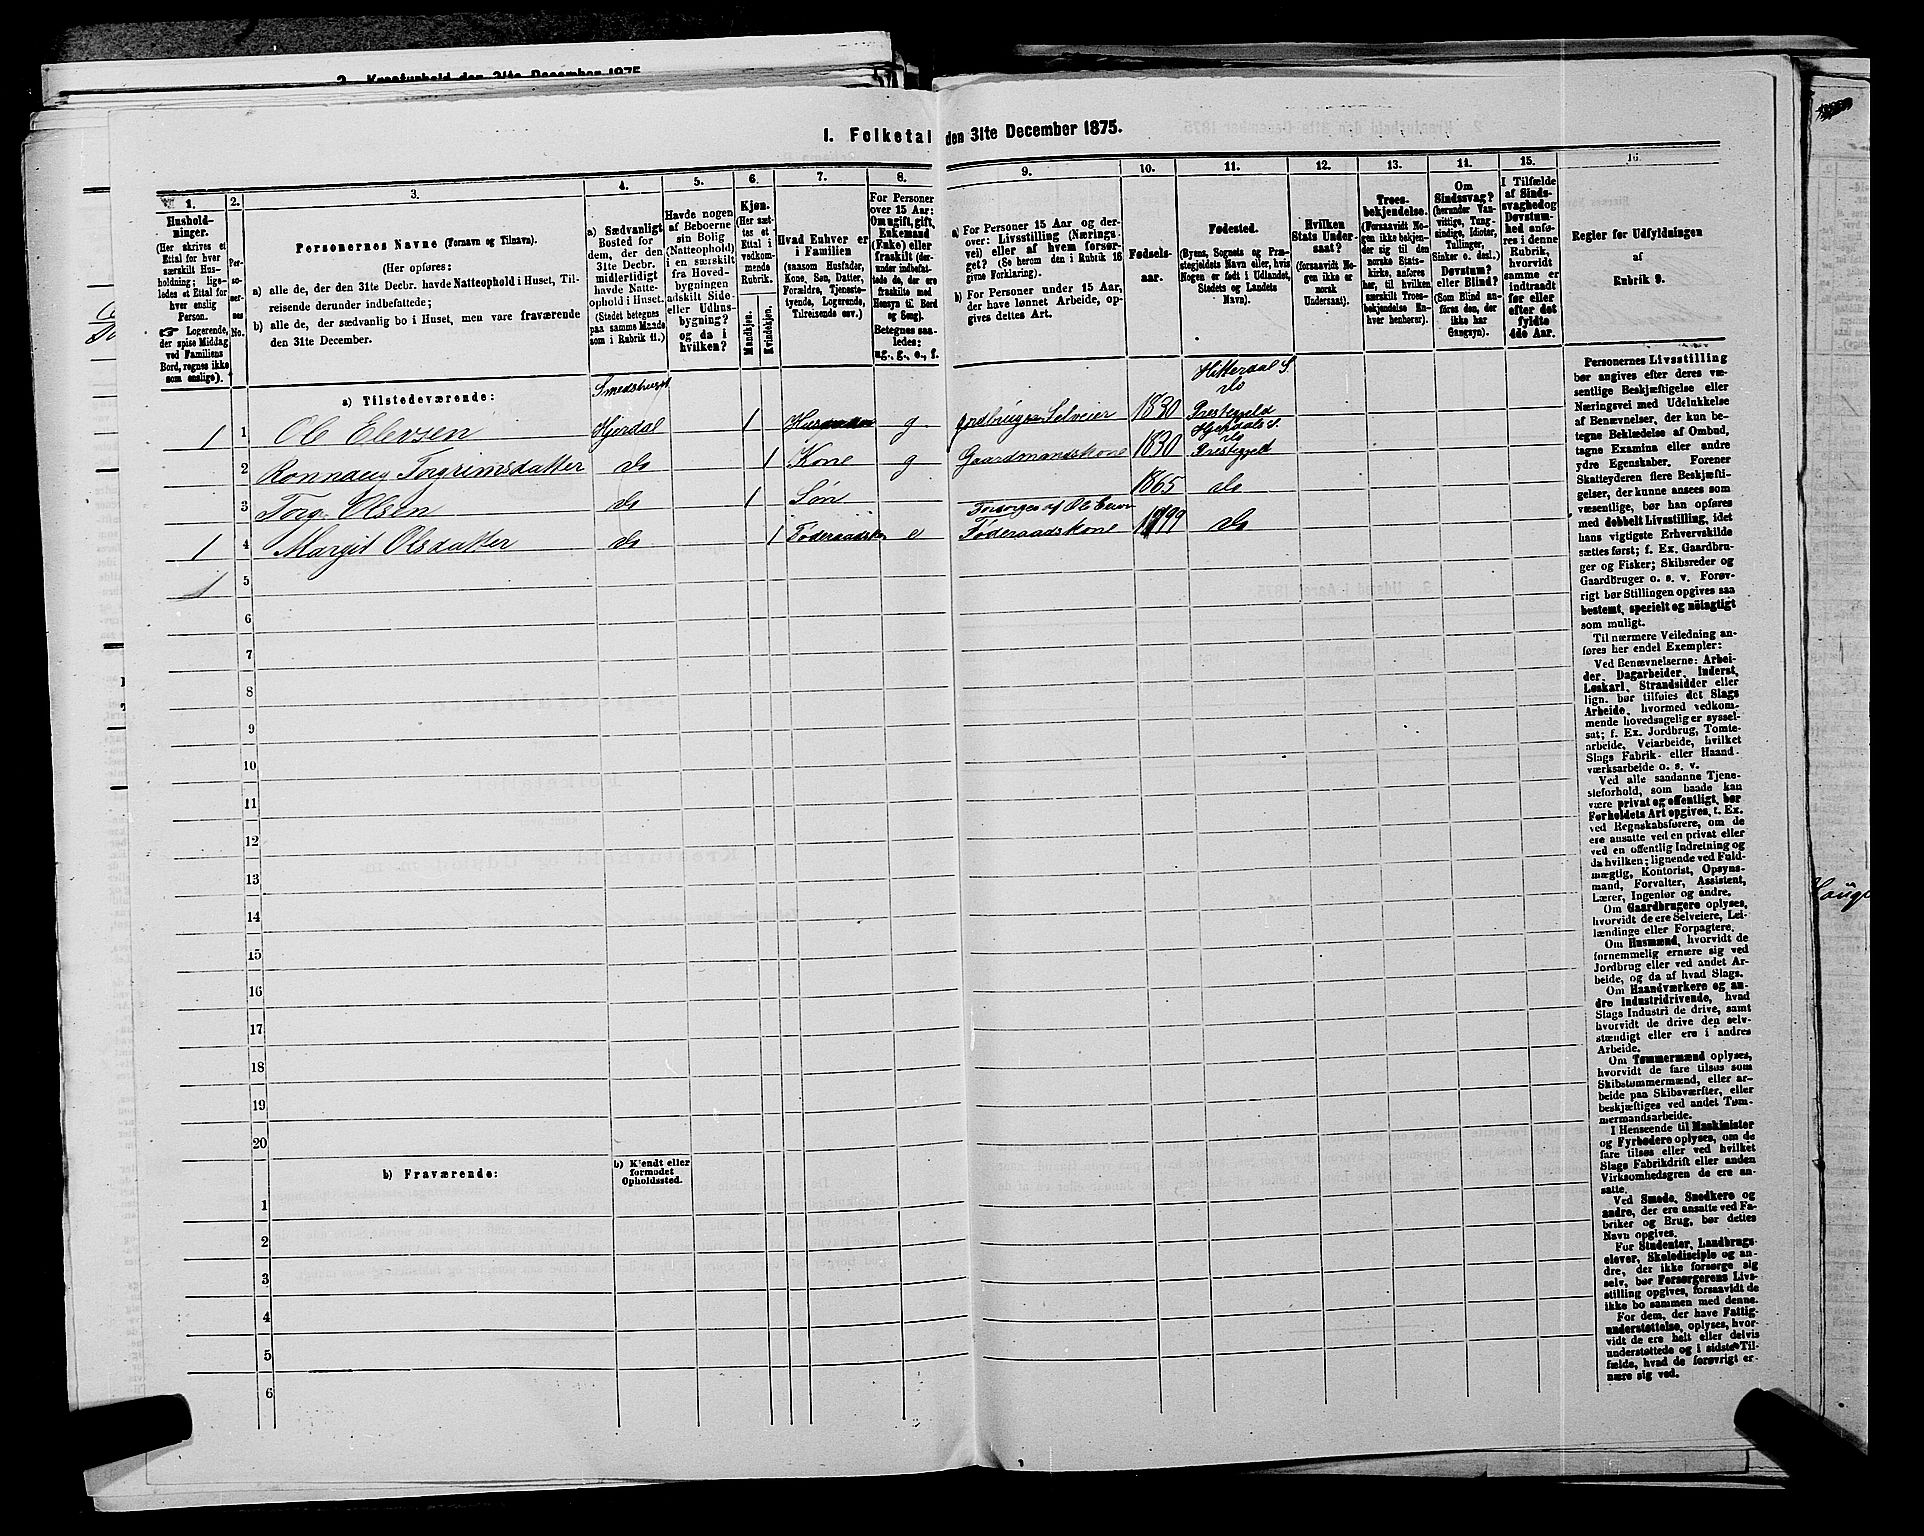 2. Kreaturhold den 31te December 1875
I. Folketal den 31te December 1875.
1.
Hushold-
ninger.
(Her skrives et
Ettal for hver
særskilt Hus-
holdning; lige-
ledes et Ettal for
hver enslig
Person.
☞ Logerende,
der spise Middag
ved Familiens
Bord, regnes ikke
som enslige).
2.
Per-
so-
ner-
nes
No.
3.
Personernes Navne (Fornavn og Tilnavn).
(Her opføres:
a) alle de, der den 31te Decbr. havde Natteophold i Huset, Til-
reisende derunder indbefattede;
b) alle de, der sædvanlig bo i Huset, men vare fraværende
den 31te December.
4.
a) Sædvanligt
Bosted for
dem, der den
31te Decbr.
midlertidigt
havde Natte-
ophold i Huset.
(Stedet betegnes
paa samme Maade
som i Rubrik 11.)
5.
Havde nogen
af Beboerne
sin Bolig
(Natteophold)
i en særskilt
fra Hoved-
bygningen
adskilt Side-
eller Udhus-
bygning?
og da i
hvilken?
6.
Kjøn.
(Her sæt-
tes et
Ettal i
vedkom-
mende
Rubrik.
Mandkjøn.
Kvindekjøn.
7.
Hvad Enhver er
i Familien
(saasom Husfader,
Kone, Søn, Datter,
Forældre, Tjeneste-
tyende, Logerende,
Tilreisende osv.)
8.
For Personer
over 15 Aar:
Om ugift, gift,
Enkemand
(Enke) eller
fraskilt (der-
under indbefat-
tede de, der ere
fraskilte med
Hensyn til Bord
og Seng).
Betegnes saa-
ledes:
ug., g., e., f.
9.
a) For Personer 15 Aar og der-
over: Livsstilling (Nærings-
vei) eller af hvem forsør-
get? (Se herom den i Rubrik 16
givne Forklaring).
b) For Personer under 15 Aar,
der have lønnet Arbeide, op-
gives dettes Art.
10.
Fødsels-
aar.
11.
Fødested.
(Byens, Sognets og Præ-
stegjeldets Navn eller, hvis
Nogen er født i Udlandet,
Stedets og Landets
Navn).
12.
Hvilken
Stats Under-
saat?
(forsaavidt No-
gen ikke er
norsk
Undersaat).
13.
Troes-
bekjendelse.
(Forsaavidt No-
gen ikke bekjen-
der sig til den
norske Stats-
kirke, anføres
her, til hvilken
særskilt Troes-
bekjendelse En-
hver henhører).
14.
Om
Sindssvag?
(herunder Van-
vittige, Tung-
sindige, Idioter,
Tullinger,
Sinker o. desl.)
Døvstum?
eller Blind?
(Som Blind an-
føres den, der
ikke har
Gangsyn).
15.
I Tilfælde
af Sinds-
svaghed og
Døvstum-
hed anfø-
res i denne
Rubrik,
hvorvidt
samme er
indtraadt
før eller
efter det
fyldte
4de Aar.
16.
Regler for Udfyldningen
af
Rubrik 9.
a) Tilstedeværende:
Smedshuset
Hitterdal S.
do
1 1 Ole Elevsen Hjerdal 1 Husmand g Jordbruger Selveier 1830 Prestegjeld
Hjerdals S.
do
2 Ronnaug Torgrimsdatter do 1 Kone g Gaardmandskone 1830 Prestegjeld
3 Torg Olsen do 1 Søn 1865 do
Forsørges af Ole
1 4 Margit Olsdatter do 1 Føderaadskone e Føderaadskone 1799 do
1 5
6
7
8
9
10
11
12
13
14
15
16
17
18
19
20
b) Fraværende:
b) Kjendt eller
formodet
Opholdssted.
1
2
3
4
5
6
Personernes Livsstilling
bør angives efter deres væ-
sentlige Beskjæftigelse eller
Næringsvei med Udelukkelse
af Benævnelser, der kun be-
tegne Beklædelse af Ombud,
tagne Examina eller andre
ydre Egenskaber. Forener
Skatteyderen flere Beskjæfti-
gelser, der kunne ansees som
væsentlige, bør han opføres
med dobbelt Livsstilling, idet
hans vigtigste Erhvervskilde
sættes først; f. Ex. Gaardbru-
ger og Fisker; Skibsreder og
Gaardbruger o. s. v. Forøv-
rigt bør Stillingen opgives saa
bestemt, specielt og nöiagtigt
som muligt.
Til nærmere Veiledning an-
føres her endel Exempler:
Ved Benævnelserne: Arbei-
der, Dagarbeider, Inderst,
Løskarl, Strandsidder eller
lign. bør tilføies det Slags
Arbeide, hvormed vedkom-
mende hovedsagelig er syssel-
sat; f. Ex. Jordbrug, Tomte-
arbeide, Veiarbeide, hvilket
Slags Fabrik- eller Haand-
værksarbeide o. s. v.
Ved alle saadanne Tjene-
steforhold, som baade kan
være privat og offentligt, bør
Forholdets Art opgives, t. Ex.
ved Regnskabsførere, om de
ere ansatte ved en privat eller
ved en offentlig Indretning og
da hvilken; lignende ved Fuld-
mægtig, Kontorist, Opsyns-
mand, Forvalter, Assistent,
Lærer, Ingeniør og andre.
Om Gaardbrugere oplyses,
hvorvidt de ere Selveiere, Lei-
lændinge eller Forpagtere.
Om Husmænd, hvorvidt de
fornemmelig ernære sig ved
Jordbrug eller ved andet Ar-
beide, og da af hvad Slags.
Om Haandværkere og an-
dre Industridrivende, hvad
Slags Industri de drive, samt
hvorvidt de drive den selv-
stændigt eller ere i andres
Arbeide.
Om Tømmermænd oplyses,
hvorvidt de fare tilsøs som
Skibstømmermænd, eller ar-
beide paa Skibsværfter, eller
beskjæftiges ved andet Tøm-
mermandsarbeide.
I Henseende til Maskinister
og Fyrbødere oplyses, om de
fare tilsøs eller ved hvilket
Slags Fabrikdrift eller anden
Virksomhedsgren de ere an-
satte.
Ved Smede, Snedkere og
andre, der ere ansatte ved Fa-
briker og Brug, bør dettes
Navn opgives.
For Studenter, Landbrugs-
elever, Skoledisciple og an-
dre, der ikke forsørge sig
selv, bør Forsørgerens Livs-
stilling opgives, forsaavidt de
ikke bo sammen med denne.
For dem, der have Fattig-
understøttelse, oplyses, hvor-
vidt de ere helt eller delvis
understøttede og i sidste Til-
fælde, hvad de forøvrigt er-
nære sig ved.